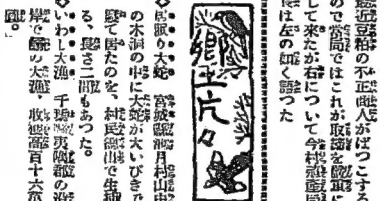 最近豆粕の不正商人がばつこする
で當局ではこれが取締を嚴重に
して來たが右について今村
は左の如く語つた
郷土片々
居眠り大蛇 宮城縣月村山中
の木洞の中に大蛇が大いびきで
居たのを、村民總出で生捕
る、長さ二間もあつた。
いわし大漁 千葉縣夷隅郡の沿
岸での大漁、收穫百十六萬
圓。